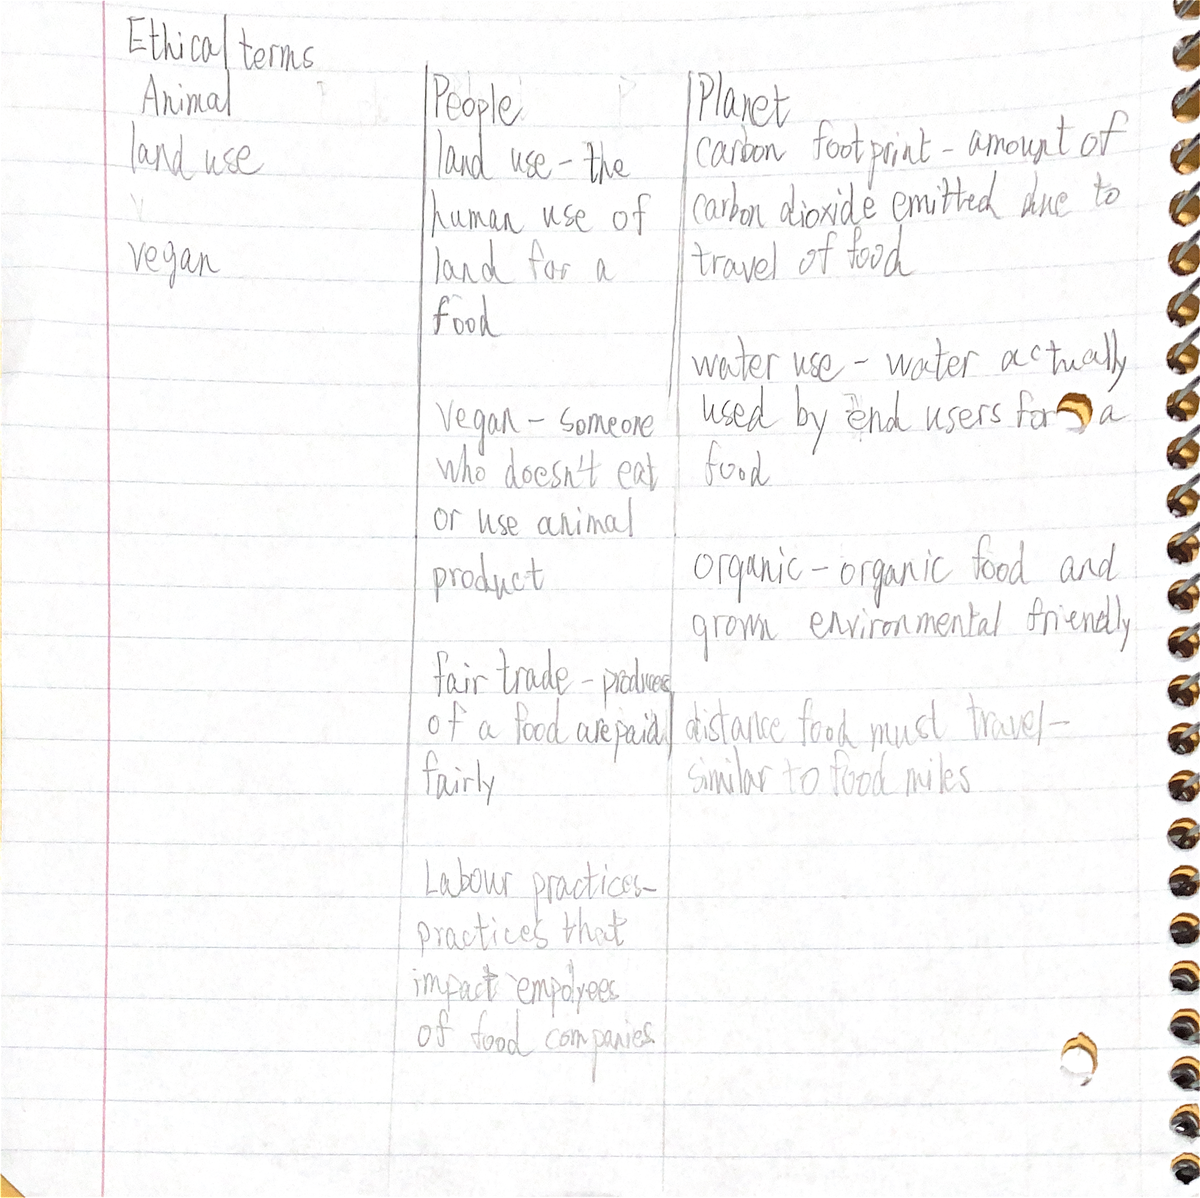 Ethical terms
Animal
land use
vegan
People
land use - the
human use of
land for a
food
vegan - someone
who doesn't eat
or use animal
product
fair trade - produces
of a food are paid
fairly
Labour practices-
practices that
impact empolyees
of food companies.
Planet
carbon footprint - amount of
carbon dioxide emitted due to
travel of food
water use - water actually
used by end users for a
food
organic - organic food and
grown environmental friendly
distance food must travel -
similar to food miles